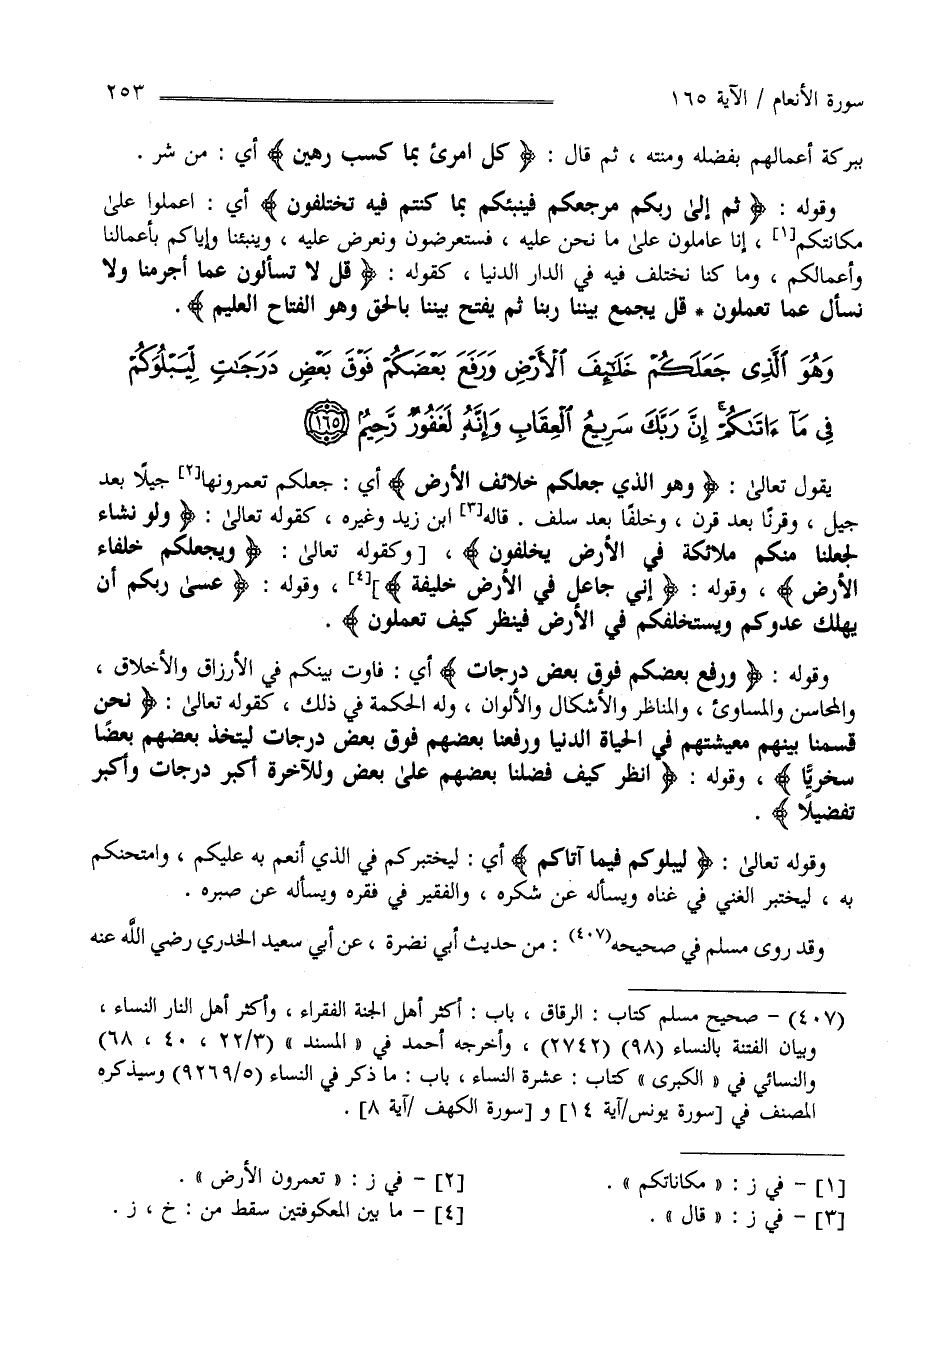 سورة الأنعام / الآية ١٦٥ ٢٥٣
ببركة أعمالهم بفضله ومنته ، ثم قال : ﴿ كل امرئ بما كسب رهين ﴾ أي : من شر .
وقوله : ﴿ ثم إلىٰ ربكم مرجعكم فينبئكم بما كنتم فيه تختلفون ﴾ أي : اعملوا علىٰ
مكانتكم[١] ، إنا عاملون علىٰ ما نحن عليه ، فستعرضون ونعرض عليه ، وينبئنا وإياكم بأعمالنا
وأعمالكم ، وما كنا نختلف فيه في الدار الدنيا ، كقوله : ﴿ قل لا تسألون عما أجرمنا ولا
نسأل عما تعملون * قل يجمع بيننا ربنا ثم يفتح بيننا بالحق وهو الفتاح العليم ﴾ .
وَهُوَ ٱلَّذِى جَعَلَكُمْ خَلَٰٓئِفَ ٱلْأَرْضِ وَرَفَعَ بَعْضَكُمْ فَوْقَ بَعْضٍ دَرَجَٰتٍ لِّيَبْلُوَكُمْ
فِى مَآ ءَاتَىٰكُمْ ۗ إِنَّ رَبَّكَ سَرِيعُ ٱلْعِقَابِ وَإِنَّهُۥ لَغَفُورٌ رَّحِيمٌۢ ١٦٥
يقول تعالىٰ : ﴿ وهو الذي جعلكم خلائف الأرض ﴾ أي : جعلكم تعمرونها[٢] جيلًا بعد
جيل ، وقرنًا بعد قرن ، وخلفًا بعد سلف . قاله[٣] ابن زيد وغيره ، كقوله تعالىٰ : ﴿ ولو نشاء
لجعلنا منكم ملائكة في الأرض يخلفون ﴾ ، [ وكقوله تعالىٰ : ﴿ ويجعلكم خلفاء
الأرض ﴾ ، وقوله : ﴿ إني جاعل في الأرض خليفة ﴾ ][٤] ، وقوله : ﴿ عسىٰ ربكم أن
يهلك عدوكم ويستخلفكم في الأرض فينظر كيف تعملون ﴾ .
وقوله : ﴿ ورفع بعضكم فوق بعض درجات ﴾ أي : فاوت بينكم في الأرزاق والأخلاق ،
والمحاسن والمساوئ ، والمناظر والأشكال والألوان ، وله الحكمة في ذلك ، كقوله تعالىٰ : ﴿ نحن
قسمنا بينهم معيشتهم في الحياة الدنيا ورفعنا بعضهم فوق بعض درجات ليتخذ بعضهم بعضًا
سخريًّا ﴾ ، وقوله : ﴿ انظر كيف فضلنا بعضهم علىٰ بعض وللآخرة أكبر درجات وأكبر
تفضيلًا ﴾ .
وقوله تعالىٰ : ﴿ ليبلوكم فيما آتاكم ﴾ أي : ليختبركم في الذي أنعم به عليكم ، وامتحنكم
به ، ليختبر الغني في غناه ويسأله عن شكره ، والفقير في فقره ويسأله عن صبره .
وقد روى مسلم في صحيحه(٤٠٧) : من حديث أبي نضرة ، عن أبي سعيد الخدري رضي اللَّه عنه
(٤٠٧) - صحيح مسلم كتاب : الرقاق ، باب : أكثر أهل الجنة الفقراء ، وأكثر أهل النار النساء ،
وبيان الفتنة بالنساء (٩٨) (٢٧٤٢) ، وأخرجه أحمد في « المسند » (٢٢/٣ ، ٤٠ ، ٦٨)
والنسائي في « الكبرى » كتاب : عشرة النساء ، باب : ما ذكر في النساء (٩٢٦٩/٥) وسيذكره
المصنف في [سورة يونس/آية ١٤] و [سورة الكهف /آية ٨] .
[١] - في ز : « مكاناتكم » . [٢] - في ز : « تعمرون الأرض » .
[٣] - في ز : « قال » . [٤] - ما بين المعكوفتين سقط من : خ ، ز .